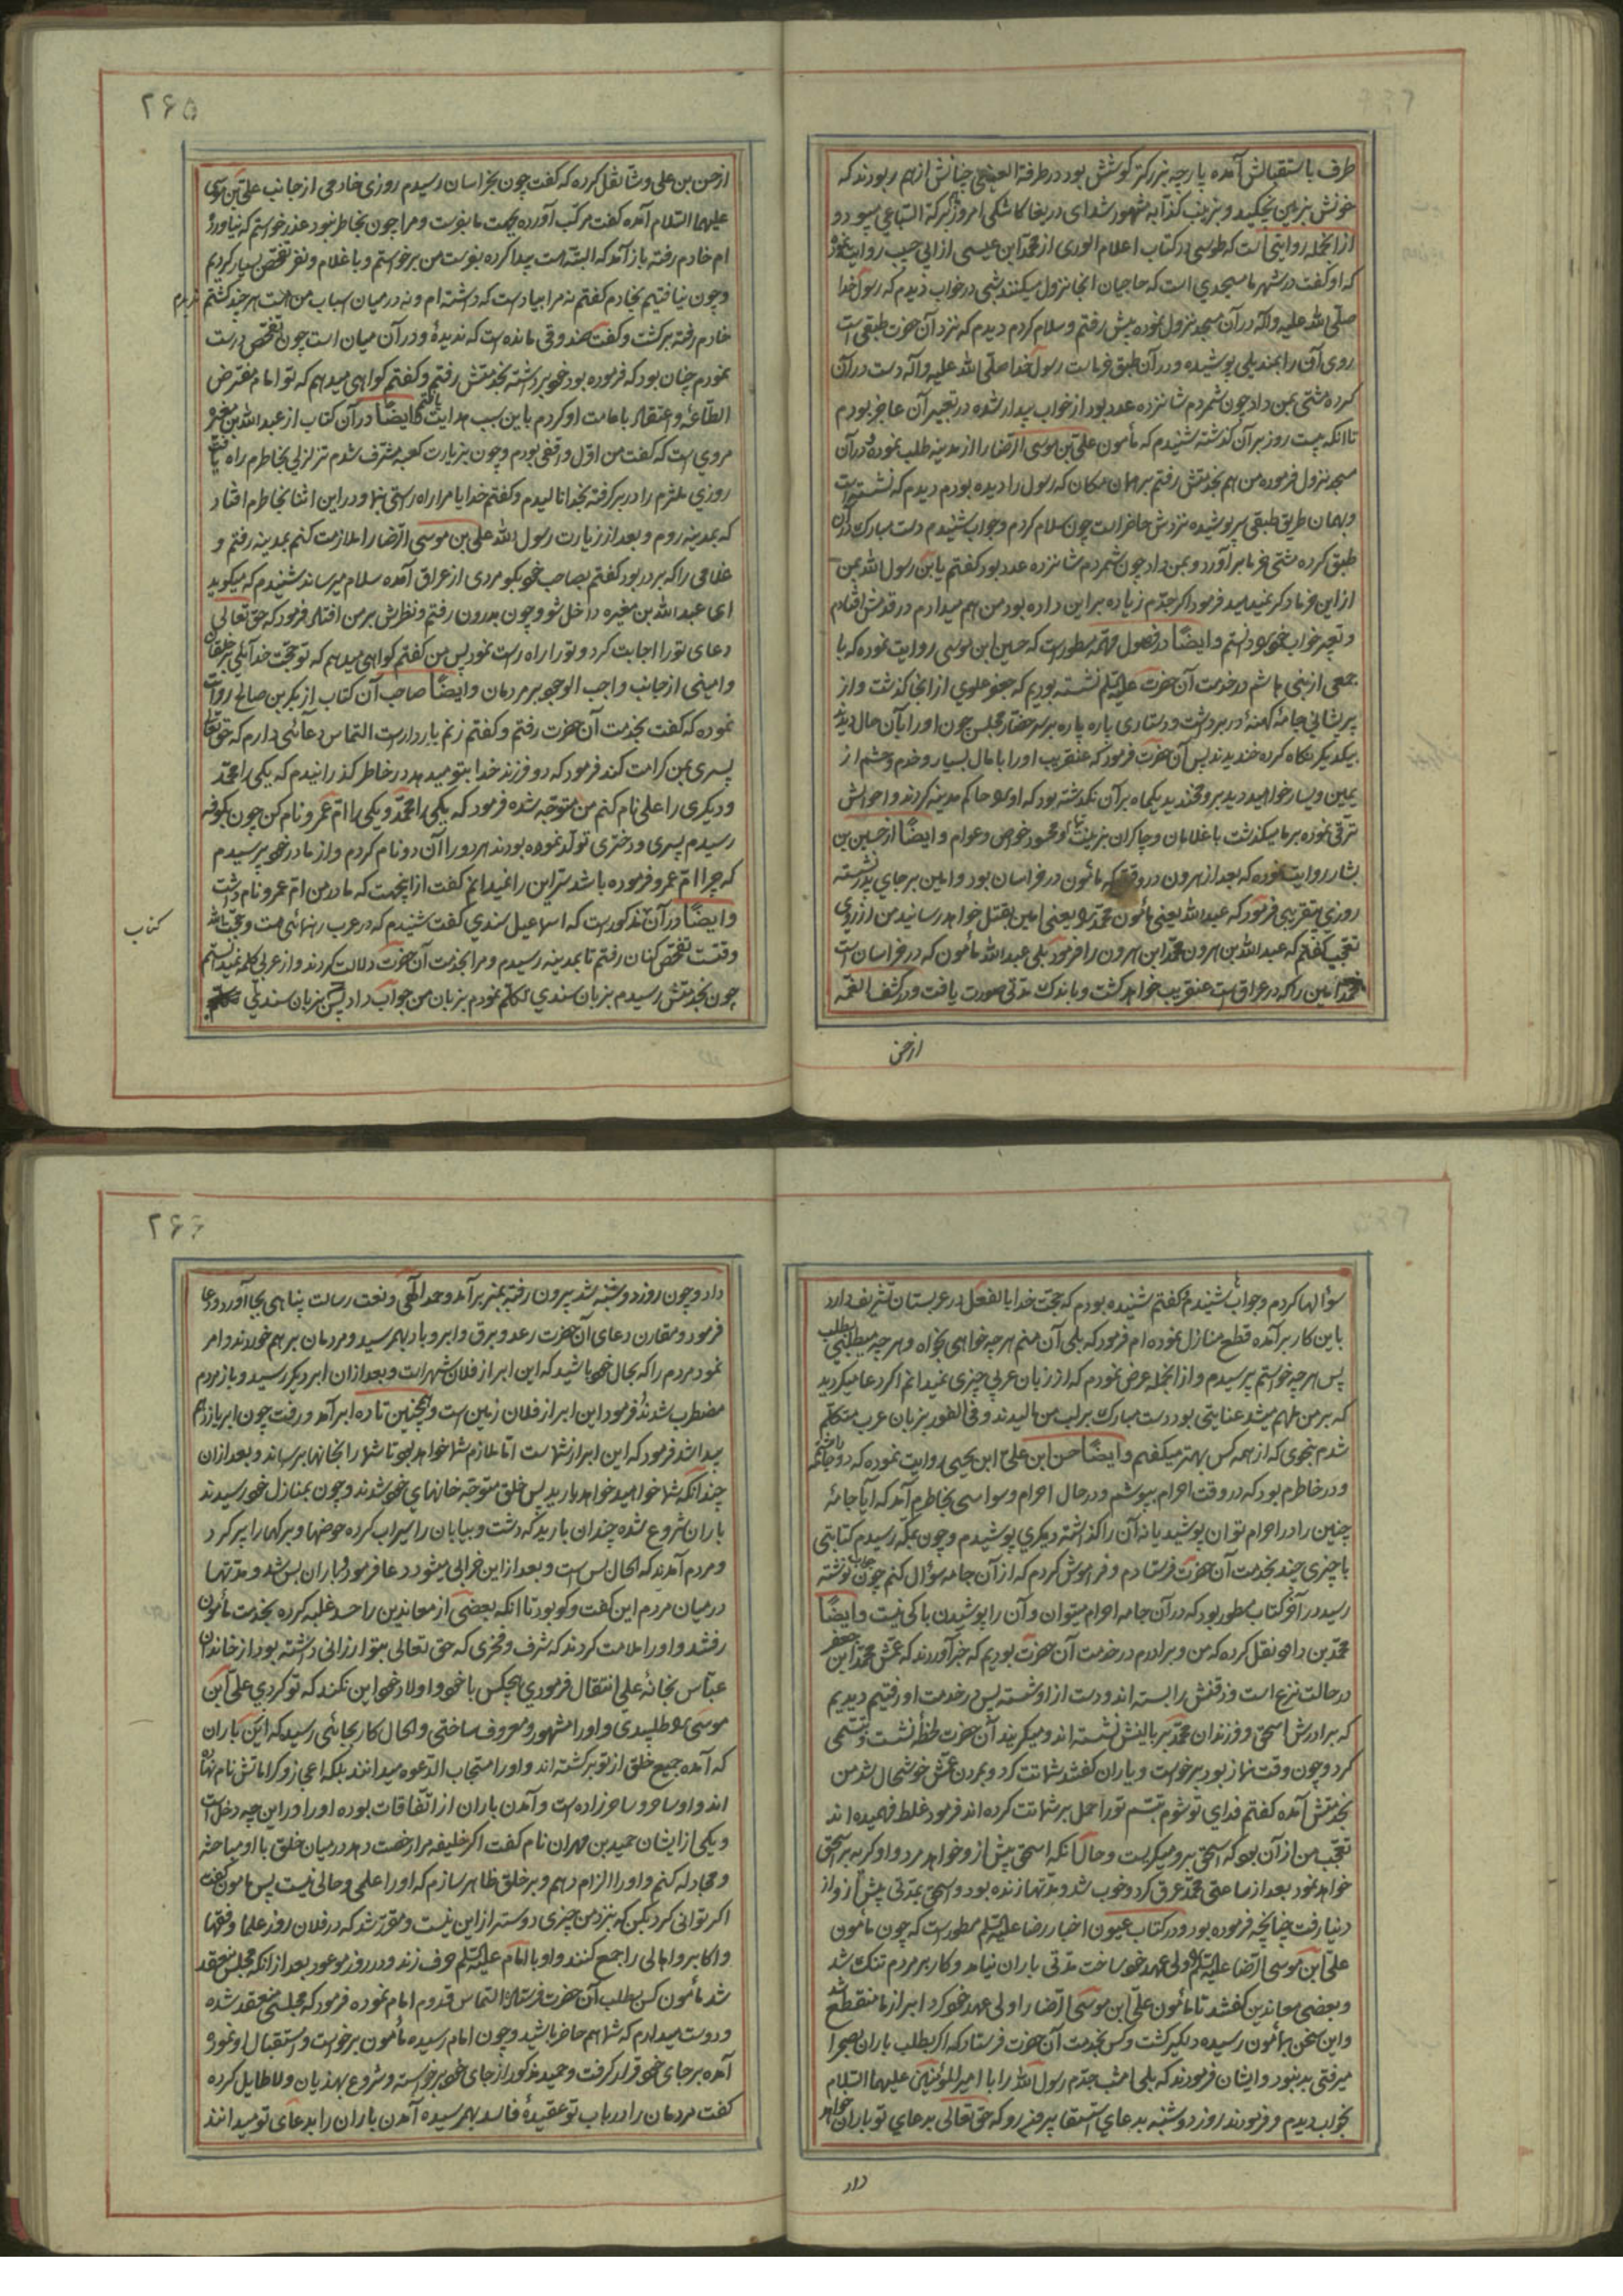 طرف باستقبالش آمده پارچه بزرکتر کوشش بود در طرفة العینی چنانش از هم ربودند که
خونش بزمین نچکید و بزینب کذابه مشهور شد ای دریغا کاشکی امروز برکة السباعی میبود و
از آنجمله روایتی است که طوسی در کتاب اعلام الوری از محمد ابن عیسی از ابی حبیب روایت نموده
که او کفت در شهر ما مسجدی است که حاجیان آنجا نزول میکنند شبی در خواب دیدم که رسول خدا
صلّی الله علیه وآله در آن مسجد نزول نموده پیش رفتم و سلام کردم دیدم که نزد آن حضرت طبقی است
روی آن را بمندیلی پوشیده و در آن طبق خرماست رسول خدا صلّی الله علیه وآله دست در آن
کرده مشتی بمن داد چون شمردم شانزده عدد بود از خواب بیدار شده در تعبیر آن عاجز بودم
تا انکه بیست روز بر آن کذشته شنیدم که مأمون علی بن موسی الرضا را از مدینه طلب نموده و در آن
مسجد نزول فرموده من هم بخدمتش رفتم بر همان مکان که رسول را دیده بودم دیدم که نشسته است
و بهمان طریق طبقی سرپوشیده نزدش حاضر است چون سلام کردم و جواب شنیدم دست مبارک در آن
طبق کرده مشتی خرما برآورد و بمن داد چون شمردم شانزده عدد بود کفتم یابن رسول الله بمن
از این خرما دکر نمیدهید فرمود اکر جدّم زیاده بر این داده بود من هم میدادم در قدمش افتادم
و تعبیر خواب خود دانستم و ایضًا در فصول مهمّه مسطور است که حسین ابن موسی روایت نموده که با
جمعی از بنی هاشم در خدمت آن حضرت علیه السّلم نشسته بودیم که جعفر علوی از انجا کذشت و از
پریشانی جامهٔ کهنهٔ در بر داشت و دستاری پاره پاره بر سر حضّار مجلس چون او را بآن حال دیدند
بیکدیکر نکاه کرده خندیدند پس آن حضرت فرمود که عنقریب او را با مال بسیار و خدم و حشم از
یمین و یسار خواهید دید بر او مخندید یکماه بر آن نکذشته بود که او را حاکم مدینه کردند و احوالش
ترقی نموده بر ما میکذشت با غلامان و چاکران بزینت تمام و محسود خواص و عوام و ایضًا از حسین بن
بشار روایت نموده که بعد از هرون در وقتی که مأمون در خراسان بود و امین بر جای پدر نشسته
روزی بتقریبی فرمود که عبدالله یعنی مأمون محمّد را یعنی امین بقتل خواهد رسانید من از روی
تعجّب کفتم که عبدالله بن هرون محمّد ابن هرون را فرمود بلی عبدالله مأمون که در خراسان است
محمّد امین را که در عراق است عنقریب خواهد کشت و باندک مدّتی صورت یافت و در کشف الغمّه
از حسن
۲۶۵
از حسن بن علی وشا نقل کرده که کفت چون بخراسان رسیدم روزی خادمی از جانب علی بن موسی
علیهما السّلام آمده کفت مرکب آورده بجهت ما بفرست و مرا چون بخاطر نبود عذر خواستم که نیاورده
ام خادم رفته باز آمد که البتّه است پیدا کرده بفرست من برخواستم و با غلام و نفر تفحّص بسیار کردیم
و چون نیافتیم بخادم کفتم نه مرا بیاد است که داشته ام و نه در میان اسباب من است هر چند کشتم
خادم رفته برکشت و کفت صندوقی مانده است که ندیدهٔ و در آن میان است چون تفحّص درست
نمودم چنان بود که فرموده بود خود برداشته بخدمتش رفتم و کفتم کواهی میدهم که تو امام مفترض
الطّاعهٔ و اعتقاد بامامت او کردم باین سبب هدایت یافتم و ایضًا در آن کتاب از عبدالله بن مغیره
مرویست که کفت من اوّل واقفی بودم و چون بزیارت کعبه مشرّف شدم تزلزلی بخاطرم راه یافت
روزی ملتزم را در بر کرفته بخدا نالیدم و کفتم خدایا مرا راه راستی بنما و در این اثنا بخاطرم افتاد
که بمدینه روم و بعد از زیارت رسول الله علی بن موسی الرّضا را ملازمت کنم بمدینه رفتم و
غلامی را که بر در بود کفتم بصاحب خود بکو مردی از عراق آمده سلام میرساند شنیدم که میکوید
ای عبدالله بن مغیره داخل شو و چون بدرون رفتم و نظرش بر من افتاد فرمود که حق تعالی
دعای تو را اجابت کرد و تو را راه راست نمود پس من کفتم کواهی میدهم که تو حجّت خدایی بر خلقان
و امینی از جانب واجب الوجود بر مردمان و ایضًا صاحب آن کتاب از بکر بن صالح روایت
نموده که کفت بخدمت آن حضرت رفتم و کفتم زنم باردار است التماس دعائی دارم که حق تعالی
پسری بمن کرامت کند فرمود که دو فرزند خدا بتو میدهد در خاطر کذرانیدم که یکی را محمّد
و دیکری را علی نام کنم من متوجّه شده فرمود که یکی را محمّد و یکی را امّ عمرو نام کن چون بکوفه
رسیدم پسری و دختری تولّد نموده بودند هر دو را آن دو نام کردم و از مادر خود پرسیدم
که چرا امّ عمرو فرموده باشد سرّ این را نمیدانم کفت از اینجهت که مادر من امّ عمرو نام داشت
و ایضًا در آن مذکور است که اسماعیل سندی کفت شنیدم که در عرب رهنمائی هست و حجّت الله
وقتست تفحّص کنان رفتم تا بمدینه رسیدم و مرا بخدمت آن حضرت دلالت کردند و از عربی کلمه نمیدانستم
چون بخدمتش رسیدم بزبان سندی تکلّم نمودم بزبان من جواب داد پس بزبان سندی
کتاب
سؤالها کردم و جواب شنیدم و کفتم شنیده بودم که حجّت خدا بالفعل در عربستان تشریف دارد
باین کار برآمده قطع منازل نموده ام فرمود که بلی آن منم هر چه خواهی بخواه و هر چه میطلبی بطلب
پس هر چه خواستم پرسیدم و از انجمله عرض نمودم که از زبان عربی چیزی نمیدانم اکر دعا میکردید
که بر من ملهم میشد عنایتی بود دست مبارک بر لب من مالیدند و فی الفور بزبان عرب متکلّم
شدم بنحوی که از همه کس بهتر میکفتم و ایضًا حسن ابن علی ابن یحیی روایت نموده که دو جامه داشتم
و در خاطرم بود که در وقت احرام بپوشم و در حال احرام وسواسی بخاطرم آمد که آیا جامهٔ
چنین را در احرام توان پوشید یا نه آن را کذاشته دیکری پوشیدم و چون بمکّه رسیدم کتابتی
با چیزی چند بخدمت آن حضرت فرستادم و فراموش کردم که از آن جامه سؤال کنم چون جواب نوشته
رسید در آخر کتاب مسطور بود که در آن جامه احرام میتوان و آن را پوشیدن باکی نیست و ایضًا
محمّد بن داود نقل کرده که من و برادرم در خدمت آن حضرت بودیم که خبر آوردند که عمّش محمّد ابن جعفر
در حالت نزع است و ذقنش را بسته اند و دست از او شسته پس در خدمت او رفتیم دیدیم
که برادرش اسحق و فرزندان محمّد بر بالینش نشسته اند و میکریند آن حضرت لحظهٔ نشست و تبسّمی
کرد و چون وقت نماز بود برخواست و یاران کفتند شماتت کرد و بمردن عمّش خوشحال شد من
بخدمتش آمده کفتم فدای تو شوم تبسّم تو را حمل بر شماتت کرده اند فرمود غلط فهمیده اند
تعجّب من از آن بود که اسحق بر او میکریست و حال آنکه اسحق پیش از او خواهد مرد و او کریه بر اسحق
خواهد نمود بعد از ساعتی محمّد عرق کرد و خوب شد و مدّتها زنده بود و اسحق بمدّتی پیش از او از
دنیا رفت چنانچه فرموده بود و در کتاب عیون اخبار رضا علیه السّلم مسطور است که چون مأمون
علی ابن موسی الرّضا علیه السّلم را ولی عهد خود ساخت مدّتی باران نیامد و کار بر مردم تنک شد
و بعضی معاندین کفتند تا مأمون علی ابن موسی الرّضا را ولی عهد خود کرد ابر از ما منقطع شد
و این سخن بمأمون رسیده دلکیر کشت و کس بخدمت آن حضرت فرستاد که اکر بطلب باران بصحرا
میرفتی بد نبود و ایشان فرمودند که بلی امشب جدّم رسول الله را با امیرالمؤمنین علیهما السّلام
بخواب دیدم و فرمودند روز دوشنبه بدعای استسقا بیرون رو که حق تعالی بدعای تو باران خواهد
داد
۲۶۶
داد و چون روز دوشنبه شد بیرون رفته بمنبر برآمد و حمد الهی و نعت رسالت پناهی بجا آورد و دعا
فرمود و مقارن دعای آن حضرت رعد و برق و ابر و باد بهم رسید و مردمان بر هم خوردند و امر
نمود مردم را که بحال خود باشید که این ابر از فلان شهر است و بعد از ان ابر دیکر رسید و باز مردم
مضطرب شدند فرمود این ابر از فلان زمین است و همچنین تا ده ابر آمد و رفت چون ابر یازدهم
پیدا شد فرمود که این ابر از شماست امّا ملازم شما خواهد بود تا شما را بخانها برساند و بعد از ان
چندانکه شما خواهید خواهد بارید پس خلق متوجّه خانهای خود شدند و چون بمنازل خود رسیدند
باران شروع شده چندان بارید که دشت و بیابان را سیراب کرده حوضها و برکها را پر کرد
و مردم آمدند که الحال بس است و بعد از این خرابی میشود دعا فرمود و باران بس شد و مدّتها
در میان مردم این کفت و کو بود تا انکه بعضی از معاندین را حسد غلبه کرده بخدمت مأمون
رفتند و او را ملامت کردند که شرف و فخری که حق تعالی بتو ارزانی داشته بود از خاندان
عبّاس بخانهٔ علی انتقال فرمودی هیچکس با خود و اولاد خود این نکند که تو کردی علی ابن
موسی را طلبیدی و او را مشهور و معروف ساختی و الحال کار بجائی رسید که این باران
که آمده جمیع خلق از تو برکشته اند و او را مستجاب الدّعوه میدانند بلکه اعجاز و کراماتش نام نهاده
اند و او ساحر و ساحرزاده است و آمدن باران از اتّفاقات بوده او را در این چه دخل است
و یکی از ایشان حمید بن مهران نام کفت اکر خلیفه مرا رخصت دهد در میان خلق با او مباحثه
و مجادله کنم و او را الزام دهم و بر خلق ظاهر سازم که او را علمی و حالی نیست پس مأمون کفت
اکر توانی کرد بکن که نزد من چیزی دوستر از این نیست و مقرّر شد که در فلان روز علما و فقها
و اکابر و اهالی را جمع کنند و او با امام علیه السّلم حرف زند و در روز موعود بعد از انکه مجلس منعقد
شد مأمون کس بطلب آن حضرت فرستاد و التماس قدوم امام نموده فرمود که مجلسی منعقد شده
و دوست میدارم که شما هم حاضر باشید و چون امام رسیده مأمون برخواست و استقبال او نمود و
آمده بر جای خود قرار کرفت و حمید مذکور از جای خود برخواسته و شروع بهذیان و لاطایل کرده
کفت مردمان را در باب تو عقیدهٔ فاسد بهم رسیده آمدن باران را بدعای تو میدانند